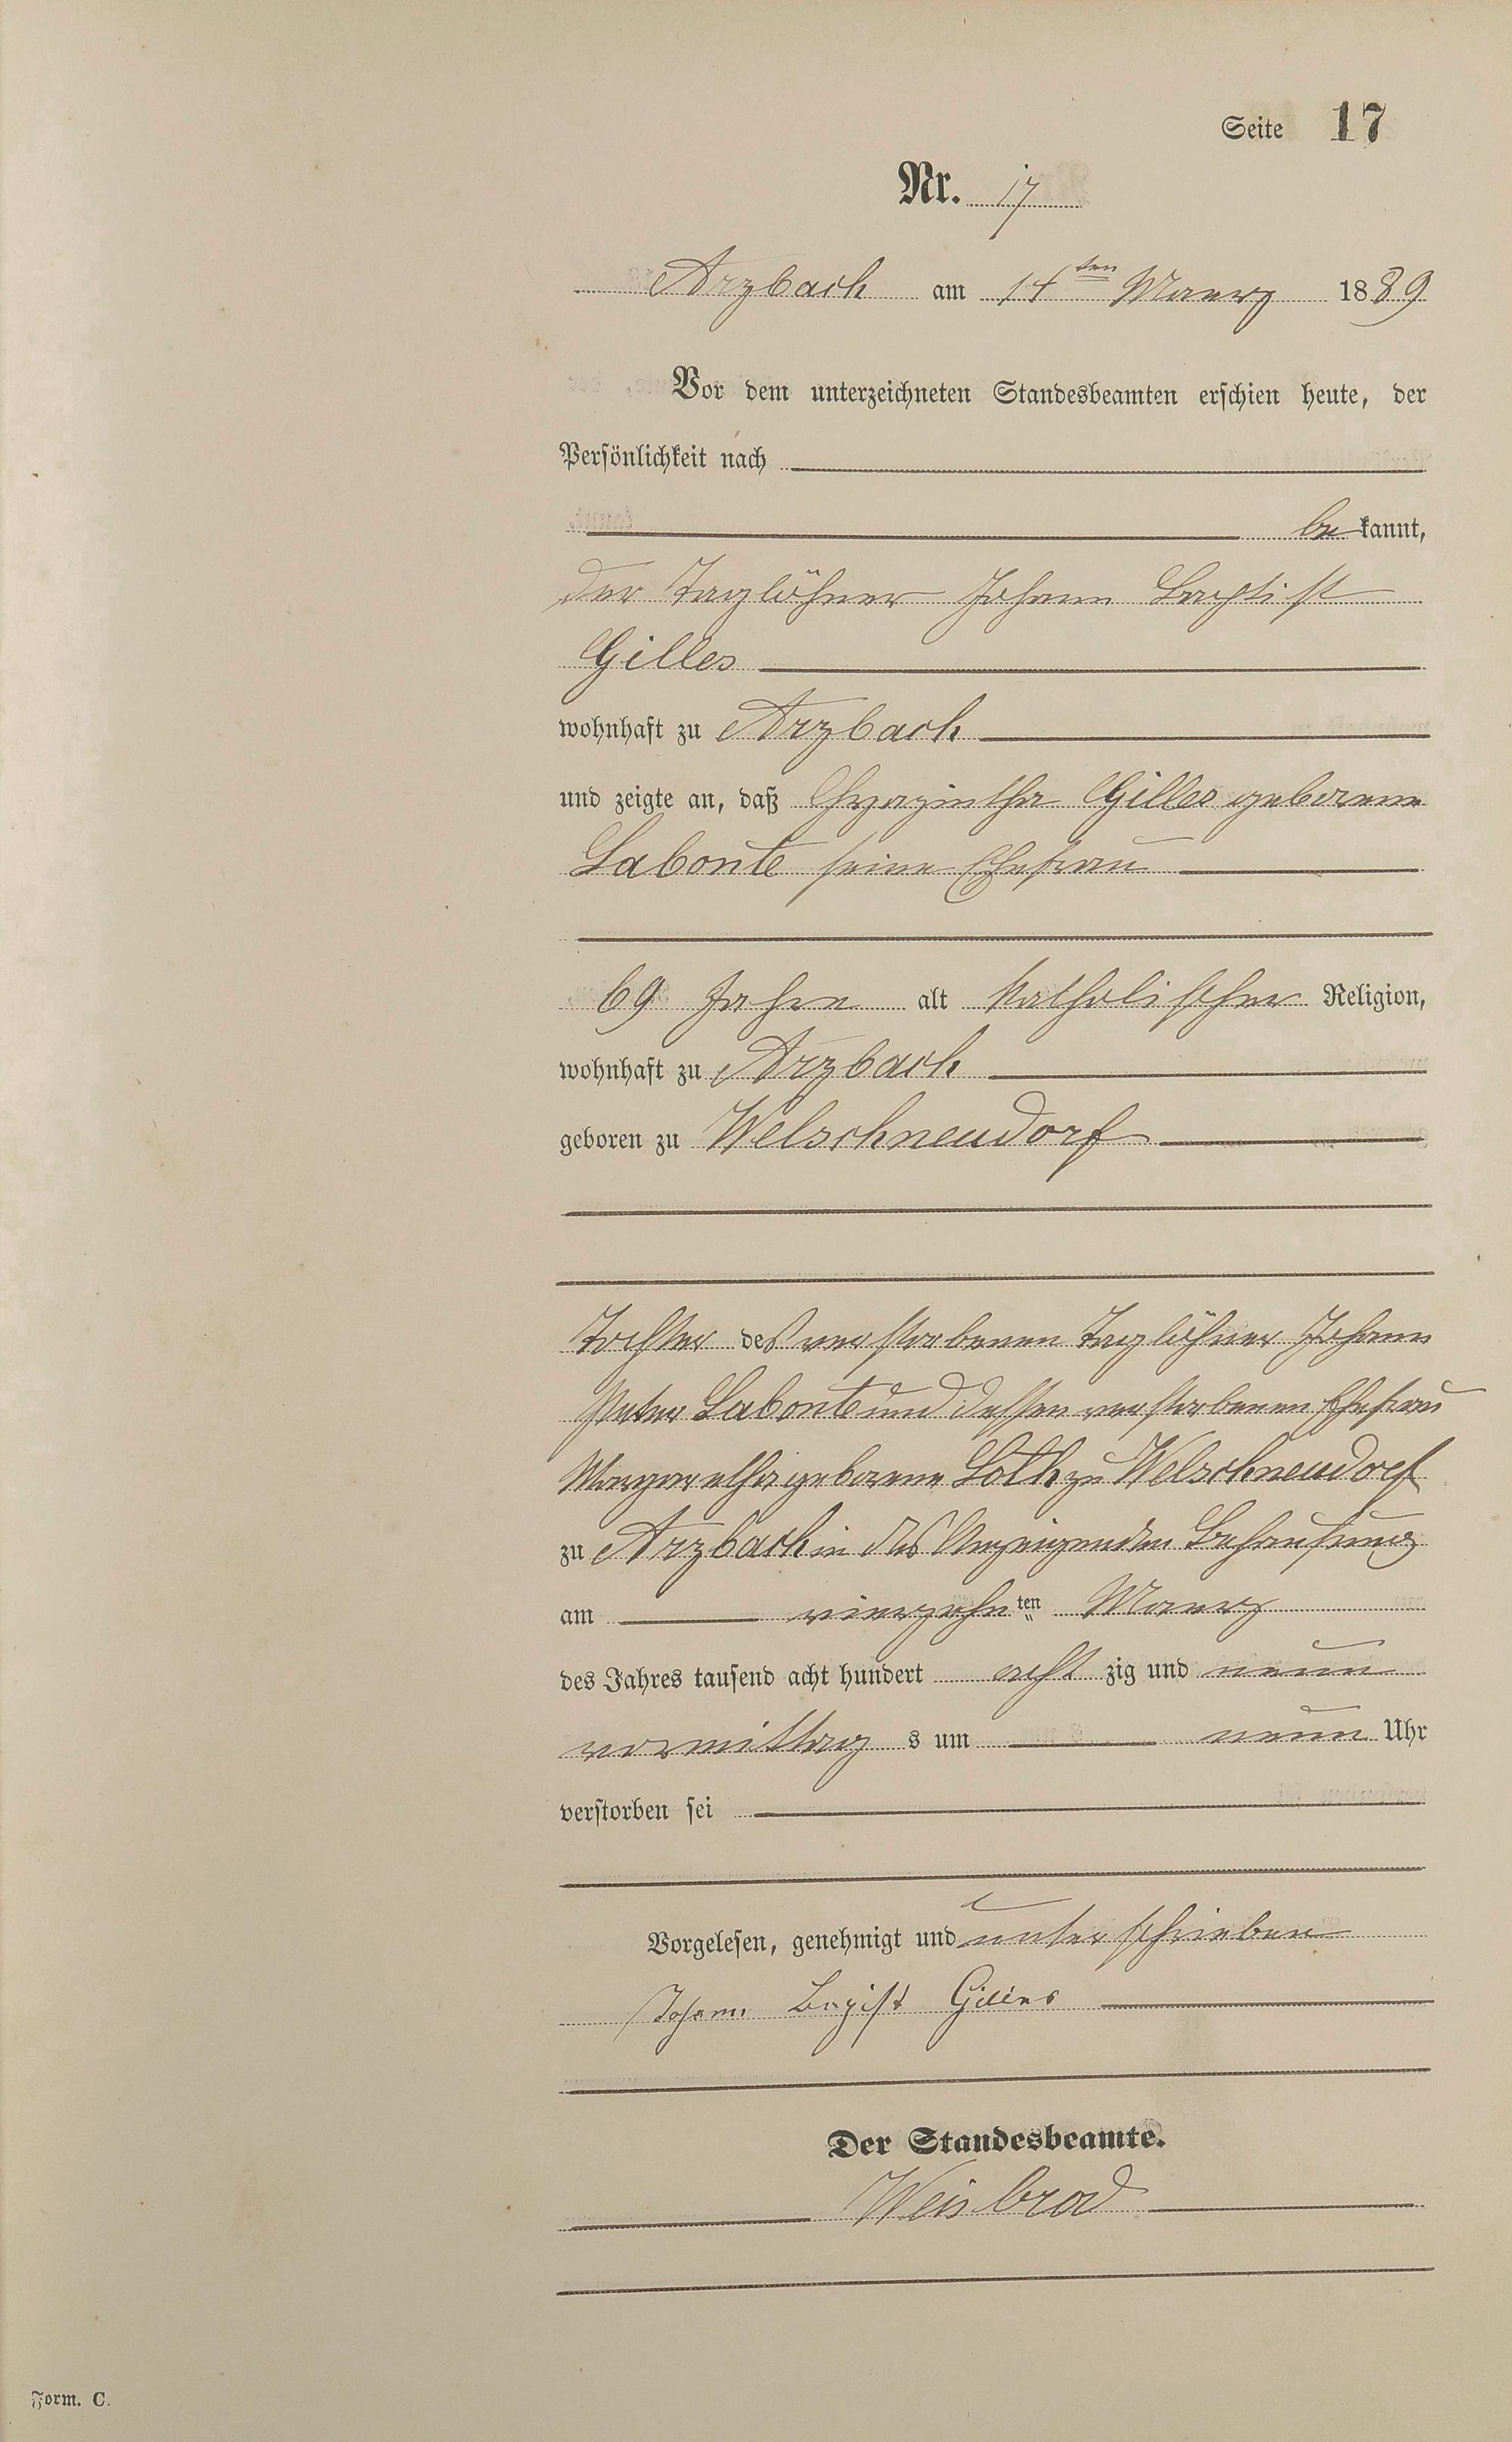 Seite 17
Nr. 17
Arzbach am 14ten Maerz 1889
Vor dem unterzeichneten Standesbeamten erschien heute, der
Persönlichkeit nach
be kannt,
der Taglöhner Johann Baptist
Gilles
wohnhaft zu Arzbach
und zeigte an, daß Hyazintha Gilles geborene
Labonte seine Ehefrau
69 Jahre alt katholischer Religion,
wohnhaft zu Arzbach
geboren zu Welschneudorf
Tochter des verstorbenen Taglöhner Johann
Peter Labonte und dessen verstorbenen Ehefrau
Margaretha geborene Loth zu Welschneudorf
zu Arzbach in des Anzeigenden Behausung
am vierzehn ten Maerz
des Jahres tausend acht hundert acht zig und neun
vormittag s um neun Uhr
verstorben sei
Vorgelesen, genehmigt und unterschrieben
Johann Bapist Gilles
Der Standesbeamte.
Weisbrod
Form. C.